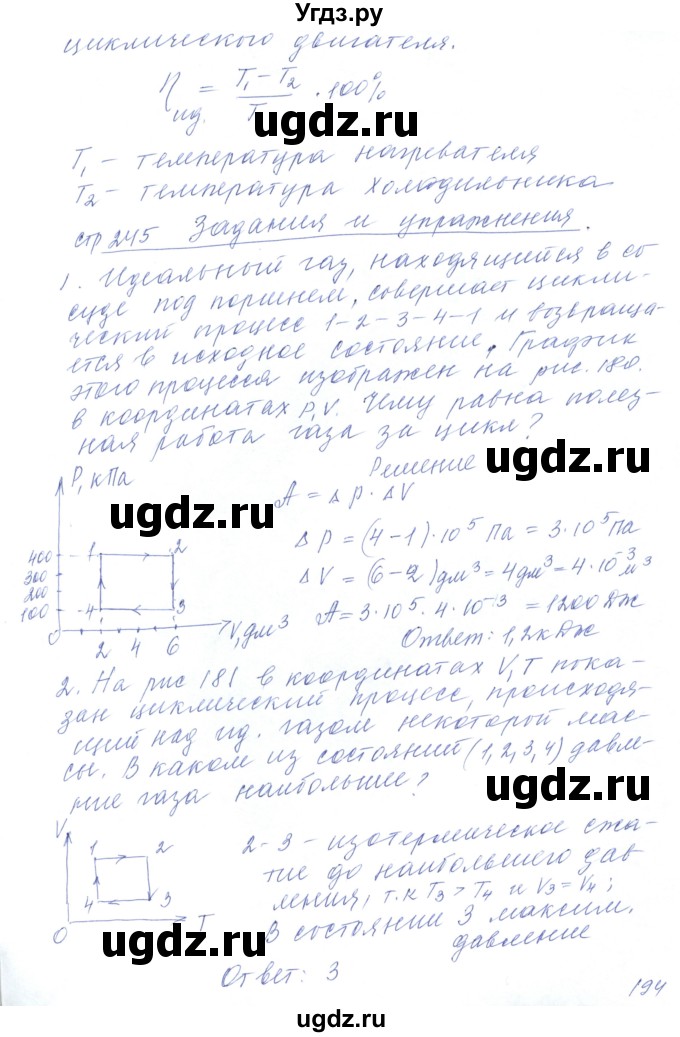 Угдз.ру
циклического двигателя.
η ид. = T₁ – T₂ / T · 100%
ugdz.ru
T₁ – температура нагревателя
T₂ – температура холодильника
стр 245 Задания и упражнения.
1. Идеальный газ, находящийся в со
суде под поршнем, совершает цикли-
ческий процесс 1-2-3-4-1 и возвраща-
ется в исходное состояние. График
этого процесса изображен на рис. 180.
в координатах P,V. Чему равна полез-
ная работа газа за цикл?
ugdz.ru
Решение
P, кПа
A = Δp · ΔV
ugdz.ru
Δp = (4-1)·10⁵ Па = 3·10⁵ Па
400 1 2
300
200
100 4 3
ΔV = (6-2) дм³ = 4 дм³ = 4·10⁻³ м³
0 2 4 6 V, дм³
A = 3·10⁵ · 4·10⁻³ = 1200 Дж
Ответ: 1,2 кДж
2. На рис 181 в координатах V,T пока-
зан циклический процесс, происходя-
щий над ид. газом некоторой мас-
сы. В каком из состояний (1,2,3,4) давле-
ние газа наибольшие?
ugdz.ru
V
1 2
4 3
0 T
2-3 – изотермическое сжа-
тие до наибольшего дав
ления, т.к T₃ > T₄ и V₃ = V₄;
В состоянии 3 максим.
давление
ugdz.ru
ugdz.ru
Ответ: 3
194
ugdz.ru